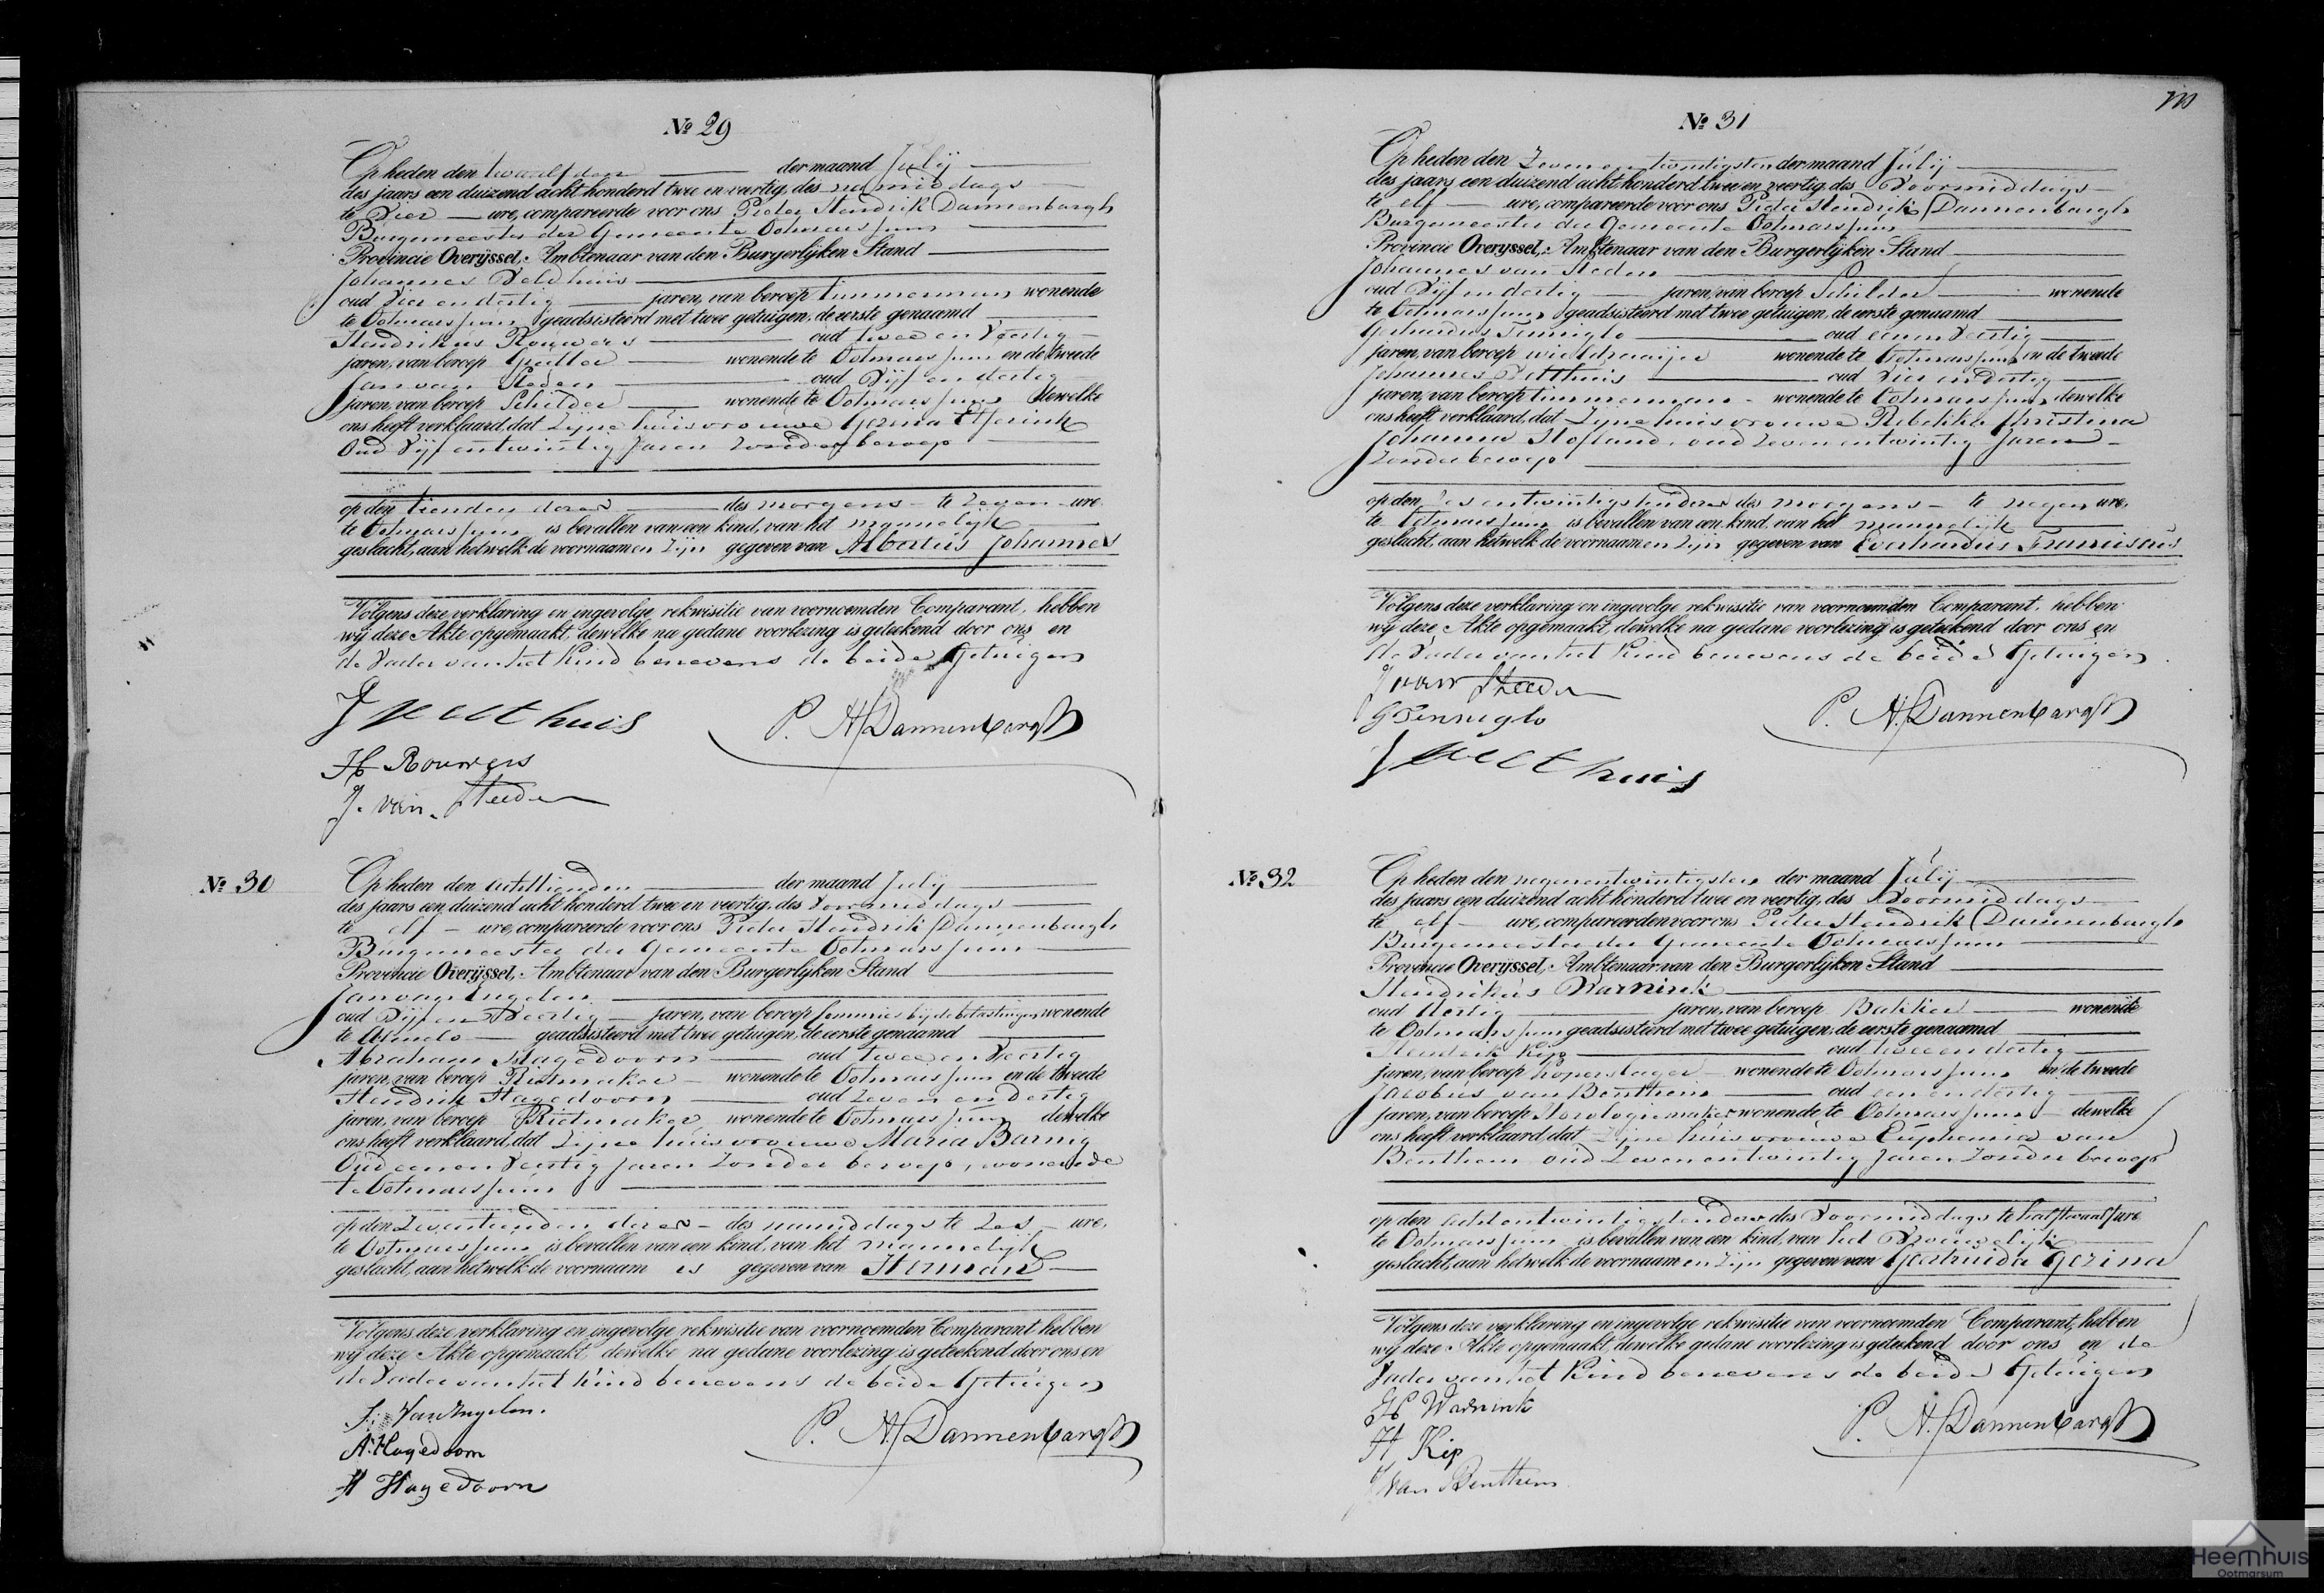 № 29
Op heden den twaalfden der maand Julij
des jaars een duizend acht honderd twee en veertig, des namiddags
te Vier ure, compareerde voor ons Pieter Hendrik Dannenbargh
Burgemeester der Gemeente Ootmarssum
Provincie Overijssel, Ambtenaar van den Burgerlijken Stand
Johannes Veldhuis
oud Vier en dertig jaren, van beroep timmerman wonende
te Ootmarssum geadsisteerd met twee getuigen, de eerste genaamd
Hendrikus Rouwers oud twee en Veertig
jaren, van beroep wonende te Ootmarssum en de tweede
Jan van Steden oud Vijf en dertig
jaren, van beroep Schilder wonende te Ootmarssum dewelke
ons heeft verklaard, dat Zijne huisvrouwe Gezina
Oud Vijf entwintig Jaren Zonder beroep
op den tienden dezer des morgens te Zeven ure
te Ootmarssum is bevallen van een kind, van het mannelijk
geslacht, aan hetwelk de voornaamen Zijn gegeven van Albertus Johannes
Volgens deze verklaring en ingevolge rekwisitie van voornoemden Comparant, hebben
wij deze Akte opgemaakt, dewelke na gedane voorlezing is geteekend door ons en
de Vader van het Kind benevens de beide Getuigen
J Velthuis
P. H. Dannenbargh
H Rouwers
J. van Steeden
№ 30
Op heden den achttienden der maand Julij
des jaars een duizend acht honderd twee en veertig, des Voormiddags
te elf ure, compareerde voor ons Pieter Hendrik Dannenbargh
Burgemeester der Gemeente Ootmarssum
Provincie Overijssel, Ambtenaar van den Burgerlijken Stand
Jan van Ingelen
oud Vijf en Veertig jaren, van beroep Commies bij de belastingen wonende
te Almelo geadsisteerd met twee getuigen, de eerste genaamd
Abraham Hagedoorn oud twee en Veertig
jaren, van beroep Rietmaker wonende te Ootmarssum en de tweede
Hendrik Hagedoorn oud Zeven en dertig
jaren, van beroep Rietmaker wonende te Ootmarssum dewelke
ons heeft verklaard, dat Zijne huisvrouwe Maria
Oud een en Veertig Jaren Zonder beroep, wonende
te Ootmarssum
op den Zeventienden dezer des namiddags te Zes ure,
te Ootmarssum is bevallen van een kind, van het mannelijk
geslacht, aan hetwelk de voornaam is gegeven van Herman
Volgens deze verklaring en ingevolge rekwisitie van voornoemden Comparant hebben
wij deze Akte opgemaakt, dewelke na gedane voorlezing is geteekend door ons en
de Vader van het kind benevens de beide Getuigen
J: Van Ingelen.
P. H. Dannenbargh
A: Hagedoorn
H Hagedoorn
№ 31
Op heden den Zeven entwintigsten der maand Julij
des jaars een duizend acht honderd twee en veertig, des Voormiddags
te elf ure, compareerde voor ons Pieter Hendrik Dannenbargh
Burgemeester der Gemeente Ootmarssum
Provincie Overijssel, Ambtenaar van den Burgerlijken Stand
Johannes van Steden
oud Vijf en dertig jaren, van beroep Schilder wonende
te Ootmarssum geadsisteerd met twee getuigen, de eerste genaamd
Gerhardus Tenniglo oud een en Veertig
jaren, van beroep wieldraaijer wonende te Ootmarssum en de tweede
Johannes Velthuis oud Vier en dertig
jaren, van beroep timmerman wonende te Ootmarssum dewelke
ons heeft verklaard, dat Zijne huisvrouwe Rebekka Christina
Johanna Hofland, oud Zeven entwintig Jaren
Zonder beroep
op den Zes entwintigsten dezer des morgens te negen ure,
te Ootmarssum is bevallen van een kind, van het mannelijk
geslacht, aan hetwelk de voornaamen Zijn gegeven van Everhardus Franciscus
Volgens deze verklaring en ingevolge rekwisitie van voornoemden Comparant, hebben
wij deze Akte opgemaakt, dewelke na gedane voorlezing is geteekend door ons en
de Vader van het Kind benevens de beide Getuigen
J van Steeden
G Tenniglo
P. H. Dannenbargh
J Velthuis
№ 32
Op heden den negenentwintigsten der maand Julij
des jaars een duizend acht honderd twee en veertig, des Voormiddags
te elf ure, compareerden voor ons Pieter Hendrik Dannenbargh
Burgemeester der Gemeente Ootmarssum
Provincie Overijssel, Ambtenaar van den Burgerlijken Stand
Hendrikus Warnink
oud dertig jaren, van beroep Bakker wonende
te Ootmarssum geadsisteerd met twee getuigen, de eerste genaamd
Hendrik Kip oud twee en dertig
jaren, van beroep Koperslager wonende te Ootmarssum en de tweede
Jacobus van Benthem oud een en dertig
jaren, van beroep Horologiemaker wonende te Ootmarssum dewelke
ons heeft verklaard, dat Zijne huisvrouwe Euphemia van
Benthem oud Zeven entwintig Jaren Zonder beroep
op den acht entwintigsten dezer des Voormiddags te half twaalf ure
te Ootmarssum is bevallen van een kind, van het Vrouwelijk
geslacht, aan hetwelk de voornaamen Zijn gegeven van Geertruida Gezina
Volgens deze verklaring en ingevolge rekwisitie van voornoemden Comparant, hebben
wij deze Akte opgemaakt, dewelke gedane voorlezing is geteekend door ons en de
Vader van het Kind benevens de beide Getuigen
H Warnink
P. H. Dannenbargh
H Kip
J van Benthem
Heemhuis
Ootmarsum